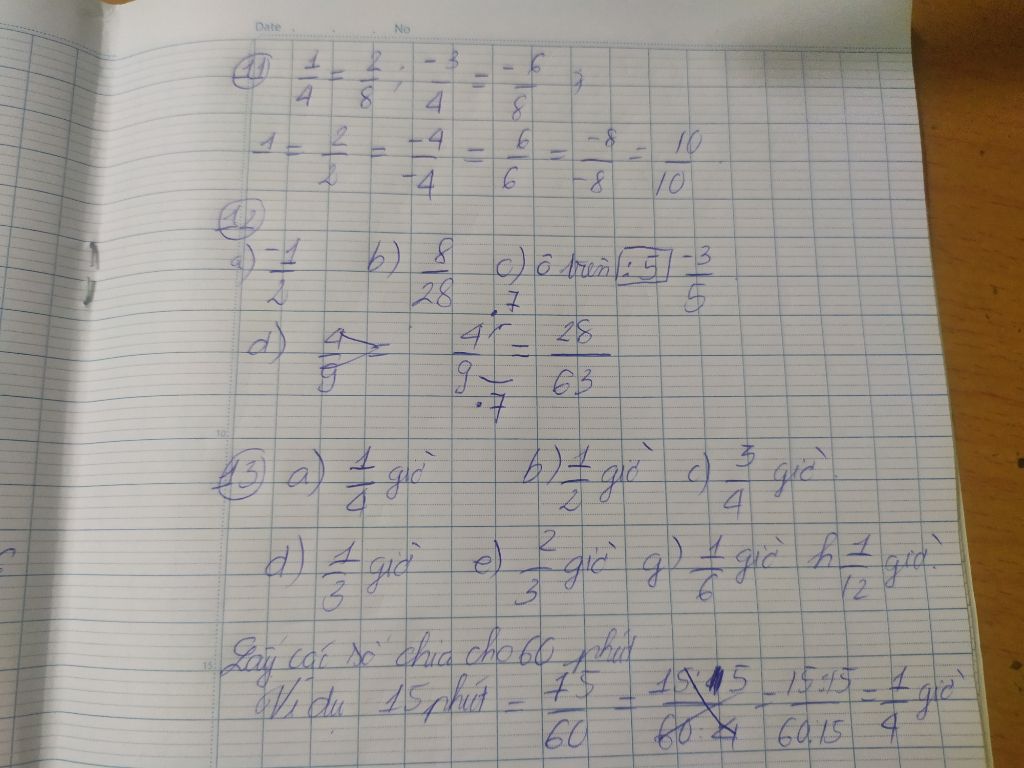 Date No
11 1/4 = 2/8 ; -3/4 = -6/8 ;
1 = 2/2 = -4/-4 = 6/6 = -8/-8 = 10/10
12
a) -1/2 b) 8/28 c) ô trên :5 -3/5
d) 4/9 = 4.7/9.7 = 28/63
13 a) 1/4 giờ b) 1/2 giờ c) 3/4 giờ.
d) 1/3 giờ e) 2/3 giờ g) 1/6 giờ h 1/12 giờ.
10
Lấy các số chia cho 60 phút
15
Ví dụ 15 phút = 15/60 = 15:15/60:4 = 15:15/60:15 = 1/4 giờ